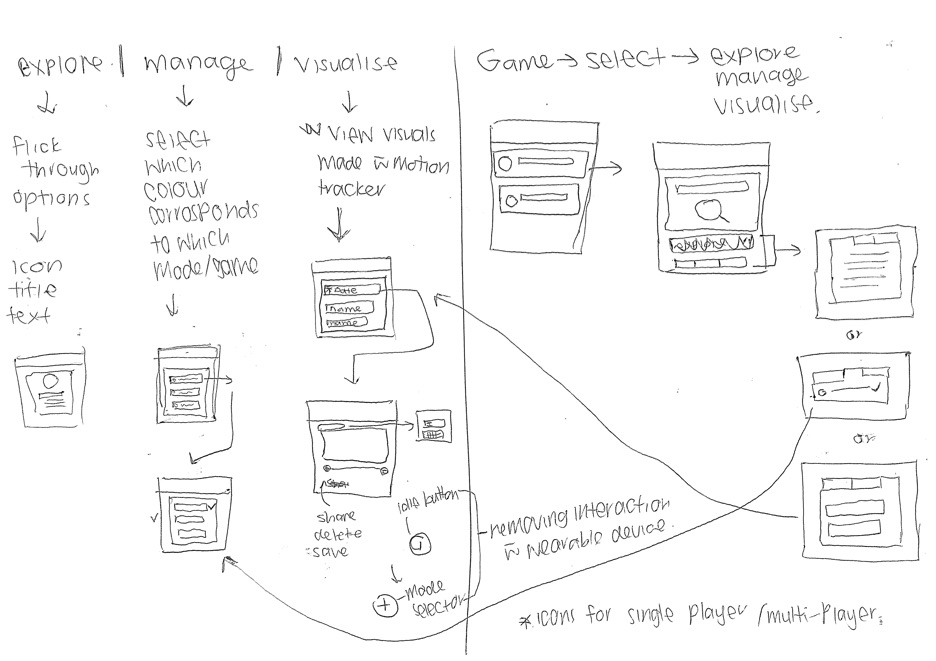 explore / manage / visualise
flick
through
options
icon
title
text
select
which
colour
corrosponds
to which
mode/game
view visuals
made w motion
tracker
date
name
name
share
delete
save
button
mode
selector
removing interaction
w wearable device.
Game → select → explore
manage
visualise.
or
or
* icons for single player /multi-player.